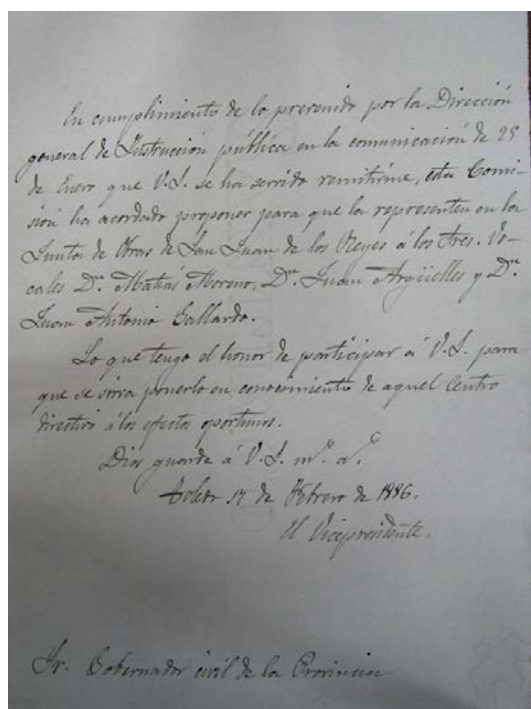 En cumplimiento de lo prevenido por la Dirección
general de Instrucción pública en la comunicación de 25
de Enero que V.S. se ha servido remitirme, esta Comi-
sión ha acordado proponer para que la representen en la
Junta de Obras de San Juan de los Reyes á los Sres. Vo-
cales Dn. Matías Moreno, Dn. Juan Argüelles y Dn.
Juan Antonio Gallardo.
Lo que tengo el honor de participar á V.S. para
que se sirva ponerlo en conocimiento de aquel Centro
directivo á los efectos oportunos.
Dios guarde á V.S. ms. as.
Toledo 17 de Febrero de 1886.
El Vicepresidente,
Sr. Gobernador civil de la Provincia